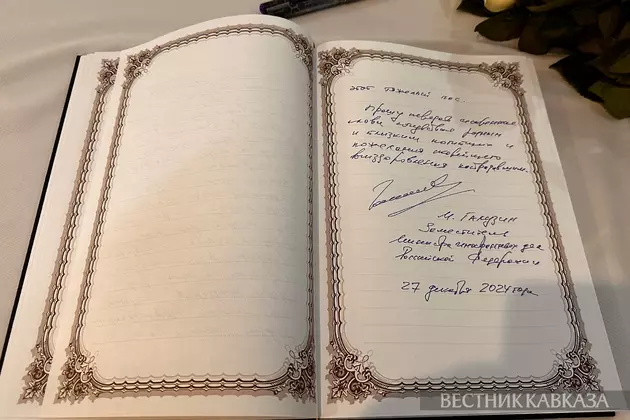 этот тяжелый час.
Прошу передать искренние
слова поддержки родным
и близким погибших и
пожелания скорейшего
выздоровления пострадавшим.
М. Галузин
Заместитель
Министра иностранных дел
Российской Федерации
27 декабря 2024 года
ВЕСТНИК КАВКАЗА